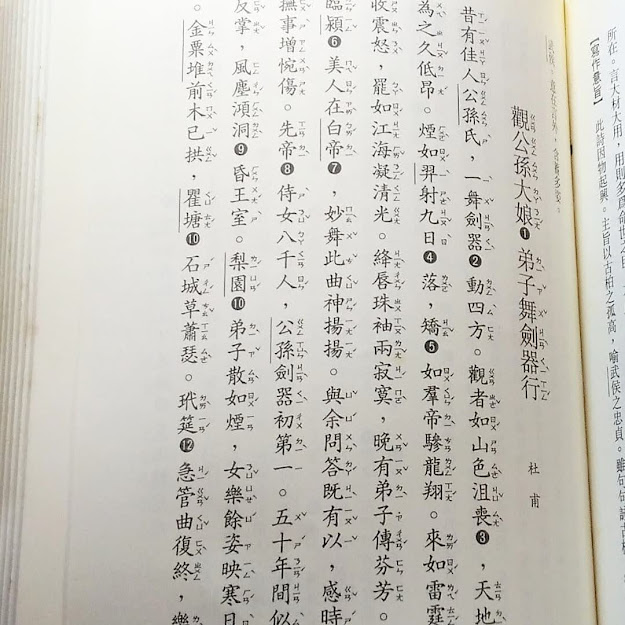 所在。言大材大用，用則多爲命世之臣
【寫作意旨】 此詩因物起興。主旨以古柏之孤高，喻武侯之忠貞。雖句句詠古柏
武侯，意在言外，含蓄多姿。
觀公孫大娘❶弟子舞劍器行 杜甫
昔有佳人公孫氏，一舞劍器❷動四方。觀者如山色沮喪❸，天地
為之久低昂。煙如羿射九日❹落，矯❺如羣帝驂龍翔。來如雷霆
收震怒，罷如江海凝清光。絳唇珠袖兩寂寞，晚有弟子傳芬芳。
臨穎❻美人在白帝❼，妙舞此曲神揚揚。與余問答既有以，感時
撫事增惋傷。先帝❽侍女八千人，公孫劍器初第一。五十年間似
反掌，風塵澒洞❾昏王室。梨園❿弟子散如煙，女樂餘姿映寒日
。金粟堆前木已拱，瞿塘❿石城草蕭瑟。玳筵⓬急管曲復終，樂